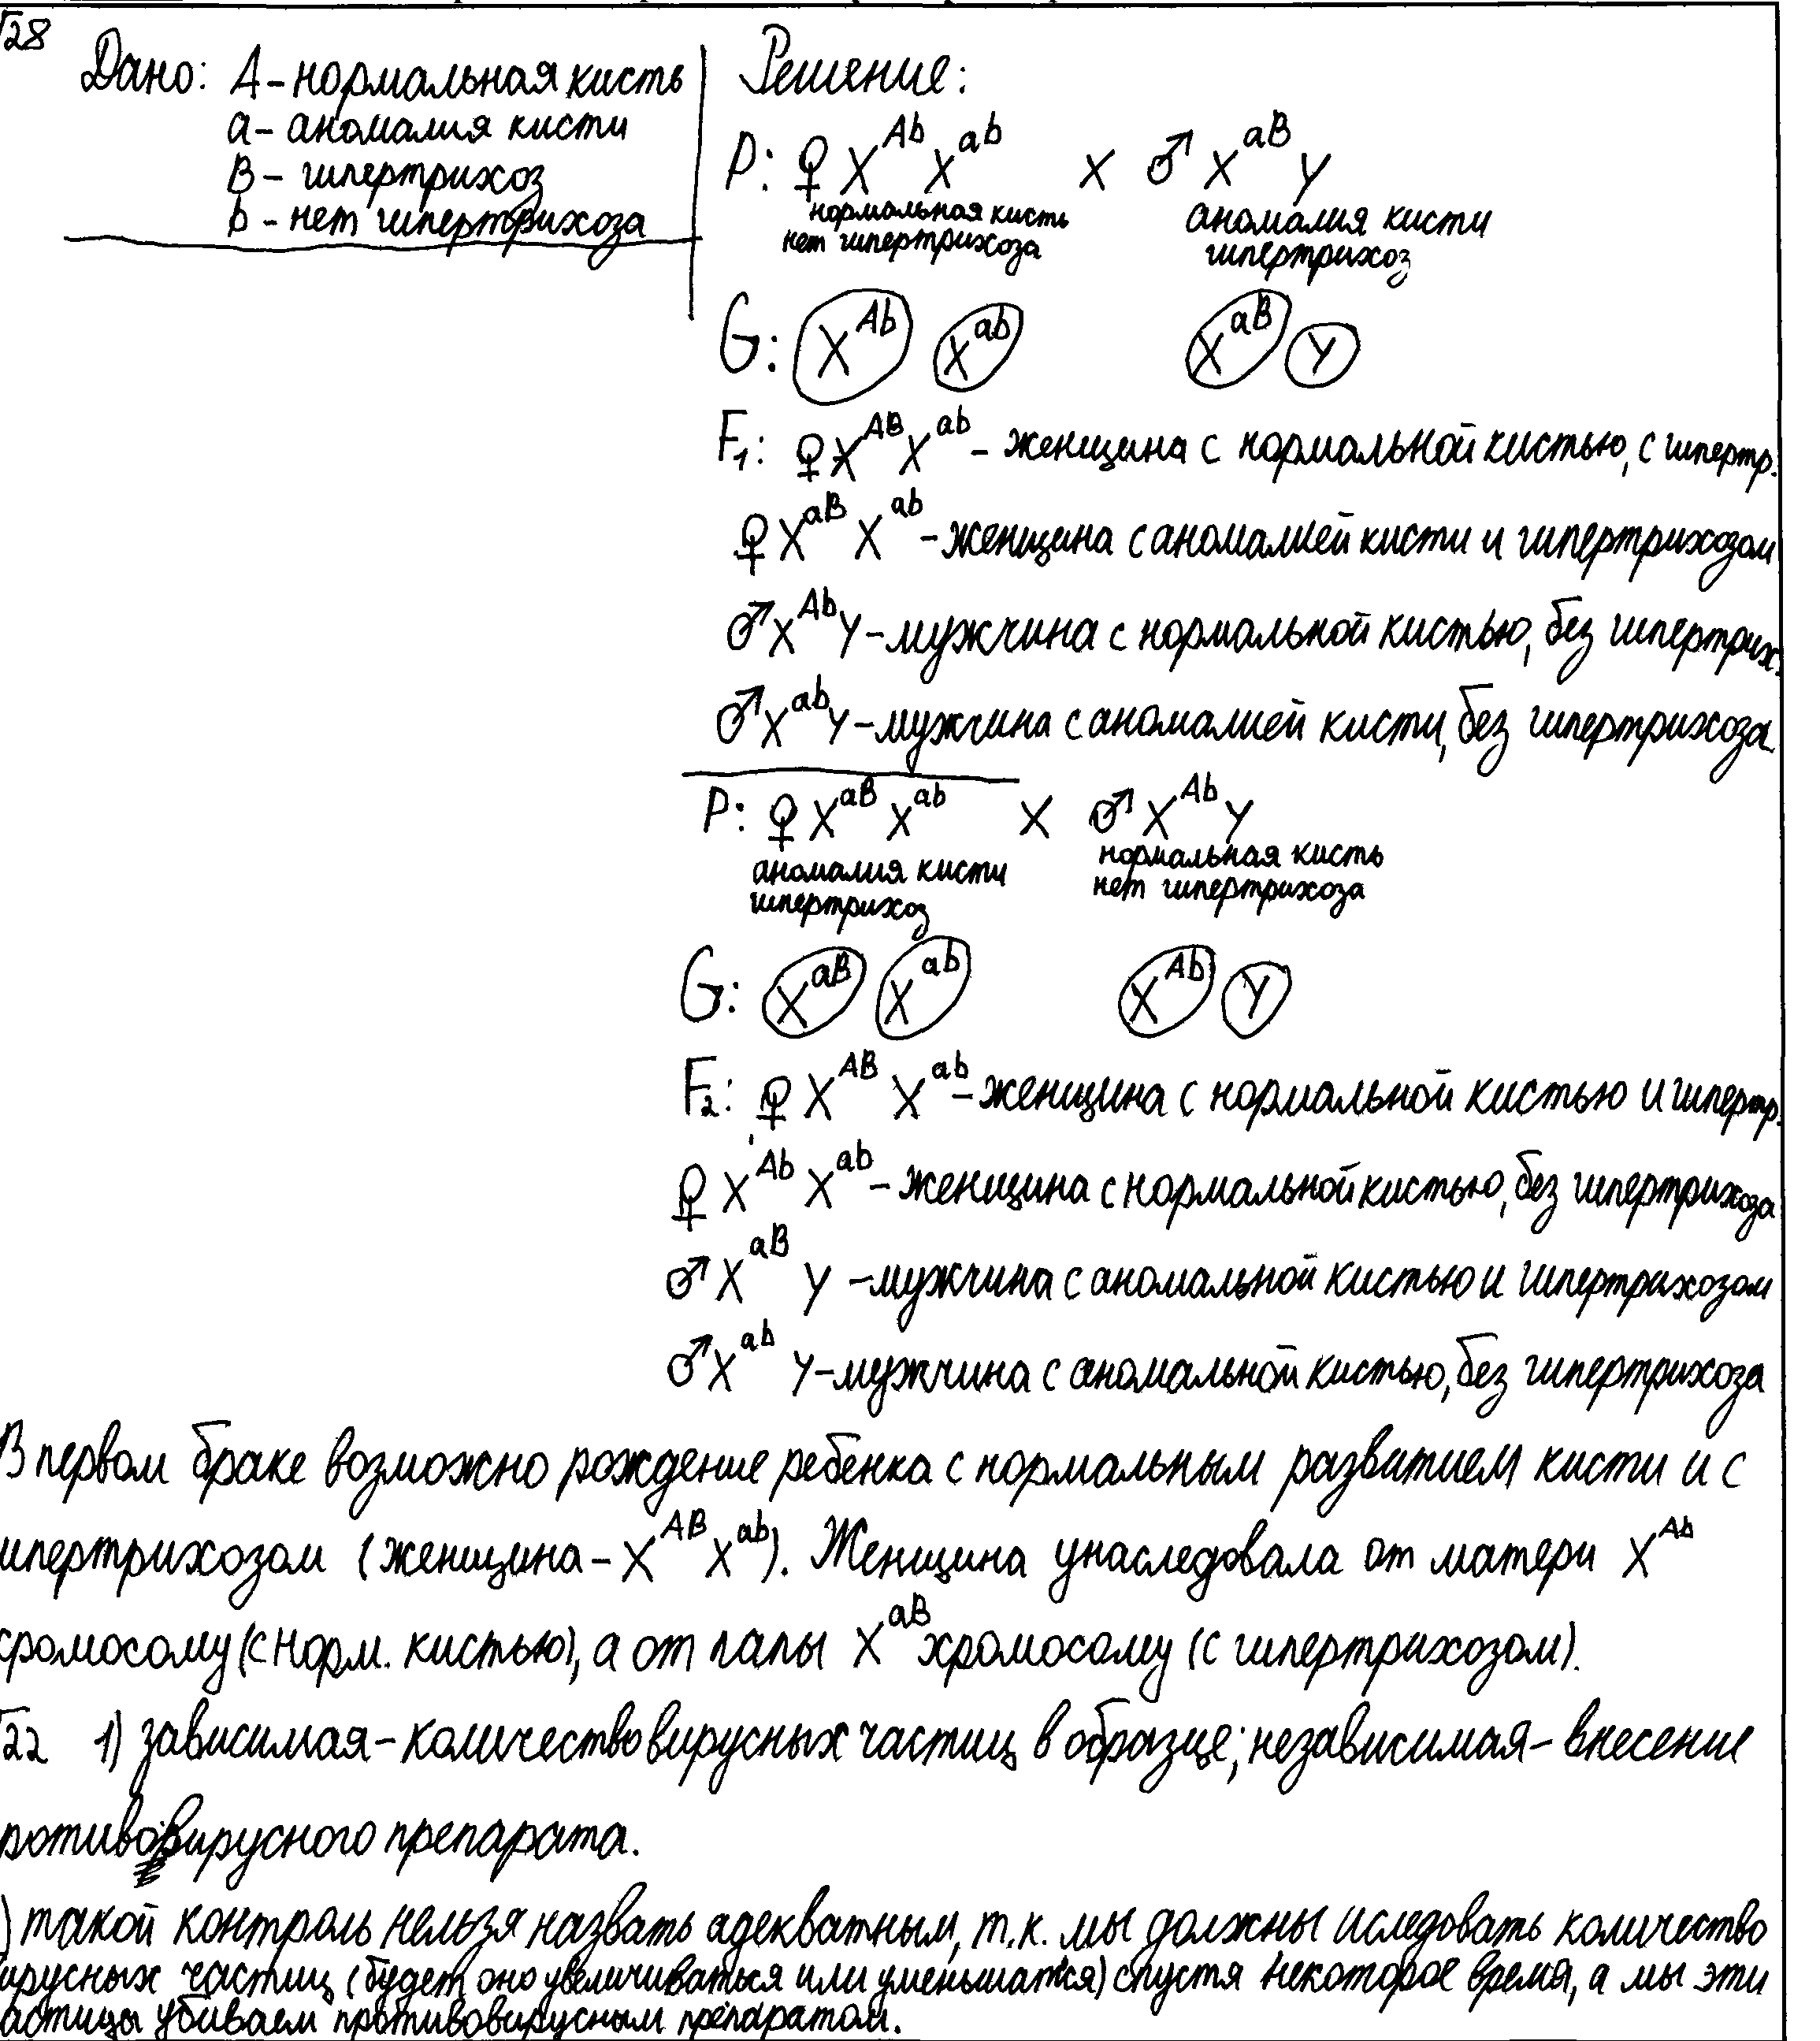 √28
Дано: A – нормальная кисть
a – аномалия кисти
B – гипертрихоз
b – нет гипертрихоза
Решение:
P: ♀ X^Ab X^ab x ♂ X^aB Y
нормальная кисть аномалия кисти
нет гипертрихоза гипертрихоз
G: X^Ab X^ab X^aB Y
F₁: ♀ X^AB X^ab – женщина с нормальной кистью, с гипертр.
♀ X^aB X^ab – женщина с аномалией кисти и гипертрихозом
♂ X^Ab Y – мужчина с нормальной кистью, без гипертрих.
♂ X^ab Y – мужчина с аномалией кисти, без гипертрихоза
P: ♀ X^aB X^ab x ♂ X^Ab Y
аномалия кисти нормальная кисть
гипертрихоз нет гипертрихоза
G: X^aB X^ab X^Ab Y
F₂: ♀ X^AB X^ab – женщина с нормальной кистью и гипертр.
♀ X^Ab X^ab – женщина с нормальной кистью, без гипертрихоза
♂ X^aB Y – мужчина с аномальной кистью и гипертрихозом
♂ X^ab Y – мужчина с аномальной кистью, без гипертрихоза
В первом браке возможно рождение ребенка с нормальным развитием кисти и с
ипертрихозом (женщина – X^AB X^ab). Женщина унаследовала от матери X^Ab
хромосому (с норм. кистью), а от папы X^aB хромосому (с гипертрихозом).
√22 1) зависимая – количество вирусных частиц в образце; независимая – внесение
ротивовирусного препарата.
) такой контроль нельзя назвать адекватным, т.к. мы должны иследовать количество
ирусных частиц (будет оно увеличиваться или уменьшатся) спустя некоторое время, а мы эти
астицы убиваем противовирусным препаратом.